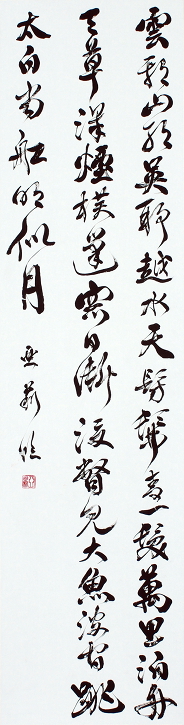 雲耶山耶吳耶越水天髣髴青一髮萬里泊舟
天草洋煙横篷窓日漸没瞥見大魚波間跳
太白當船明似月